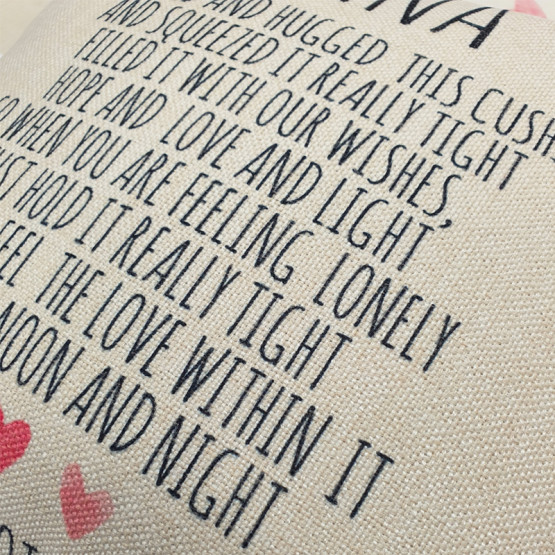 AND HUGGED THIS CUSH
AND SQUEEZED IT REALLY TIGHT
FILLED IT WITH OUR WISHES,
HOPE AND LOVE AND LIGHT
WHEN YOU ARE FEELING LONELY
HOLD IT REALLY TIGHT
FEEL THE LOVE WITHIN IT
NOON AND NIGHT